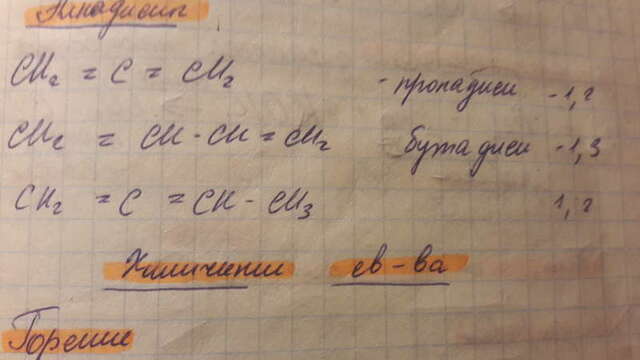 CH₂ = C = CH₂ - пропадиен -1,2
CH₂ = CH - CH = CH₂ бутадиен -1,3
CH₂ = C = CH - CH₃ 1,2
Химические св-ва
Горение